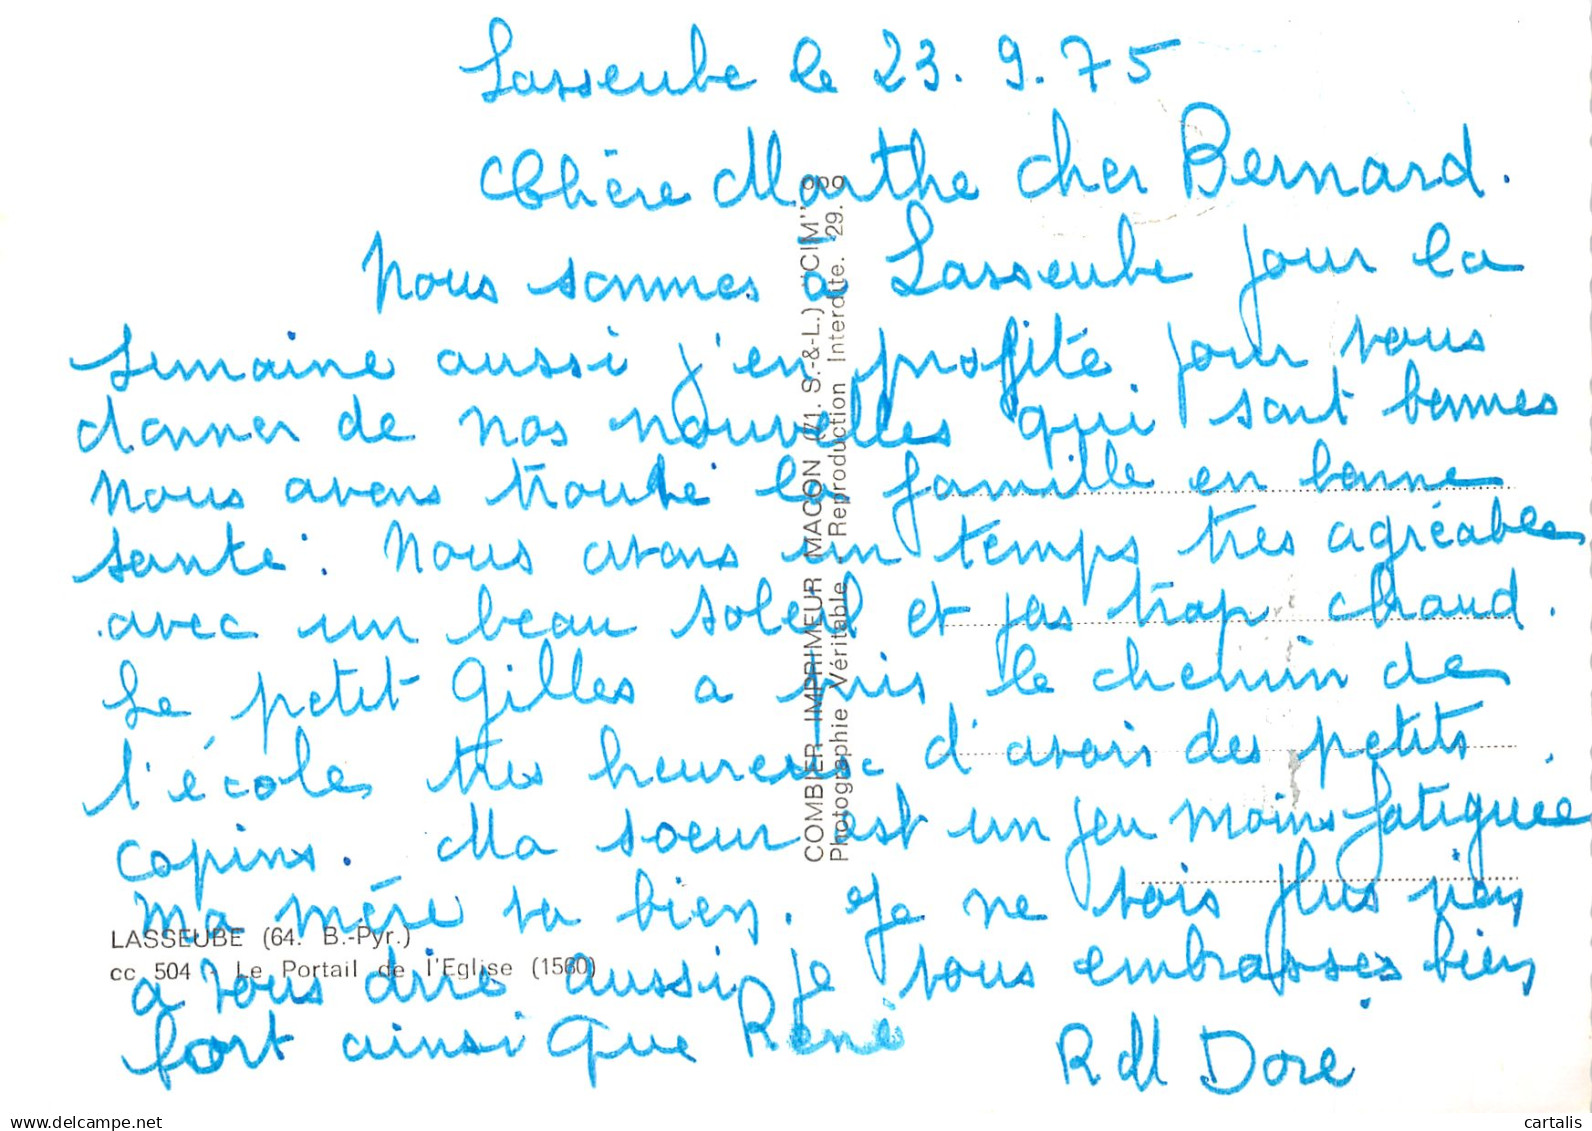 Lasseube le 23.9.75
Chère Marthe cher Bernard.
Nous sommes à Lasseube pour la
semaine aussi j'en profite pour vous
donner de nos nouvelles qui sont bonnes
nous avons trouvé la famille en bonne
sante. Nous avons un temps tres agréables
avec un beau soleil et pas trop chaud.
Le petit Gilles a pris le chemin de
l'école, tres heureux d'avoir des petits
copins. Ma soeur est un peu moins fatiguee
ma mère va bien. Je ne vois plus rien
a vous dire aussi je vous embrasses bien
fort ainsi que René
R M Dore
LASSEUBE (64. B.-Pyr.)
cc 504 - Le Portail de l'Eglise (1560)
COMBIER IMPRIMEUR MACON (71. S.-&-L.) "CIM"
Photographie Véritable - Reproduction Interdite. 29.
delcampe.net
cartalis